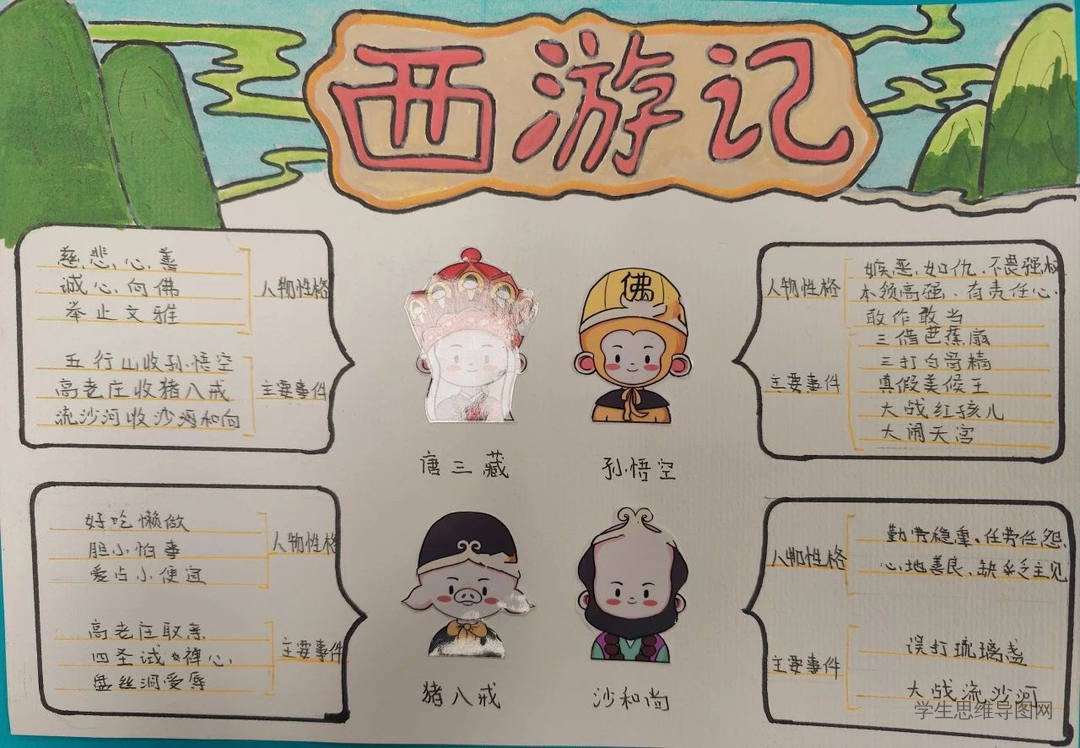 西游记
慈悲心善
诚心向佛
举止文雅
人物性格
五行山收孙悟空
高老庄收猪八戒
流沙河收沙和向
主要事件
佛
唐三藏
孙悟空
人物性格
嫉恶如仇、不畏强权
本领高强、有责任心、
敢作敢当
主要事件
三借芭蕉扇
三打白骨精
真假美候王
大战红孩儿
大闹天宫
好吃懒做
胆小怕事
爱占小便宜
人物性格
高老庄取亲
四圣试禅心
盘丝洞受辱
主要事件
猪八戒
沙和尚
人物性格
勤劳稳重、任劳任怨、
心地善良、缺乏主见
主要事件
误打琉璃盏
大战流沙河
学生思维导图网